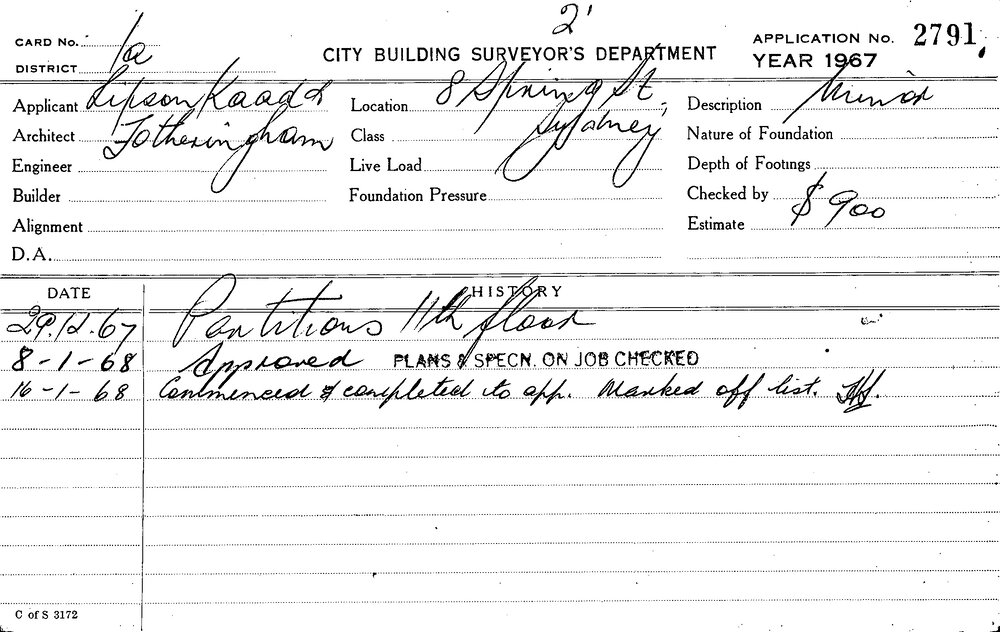 2'
CARD No.
CITY BUILDING SURVEYOR'S DEPARTMENT
APPLICATION No. 2791
DISTRICT 1a
YEAR 1967
Applicant Lipson Kaad &
Location 8 Spring St,
Description Minor
Architect Fotheringham
Class Sydney
Nature of Foundation
Engineer
Live Load
Depth of Footings
Builder
Foundation Pressure
Checked by
Alignment
Estimate $900
D.A.
DATE HISTORY
29.12.67 Partitions 11th floor
8-1-68 Approved PLANS & SPECN. ON JOB CHECKED
16-1-68 Commenced & completed to app. Marked off list.
C of S 3172